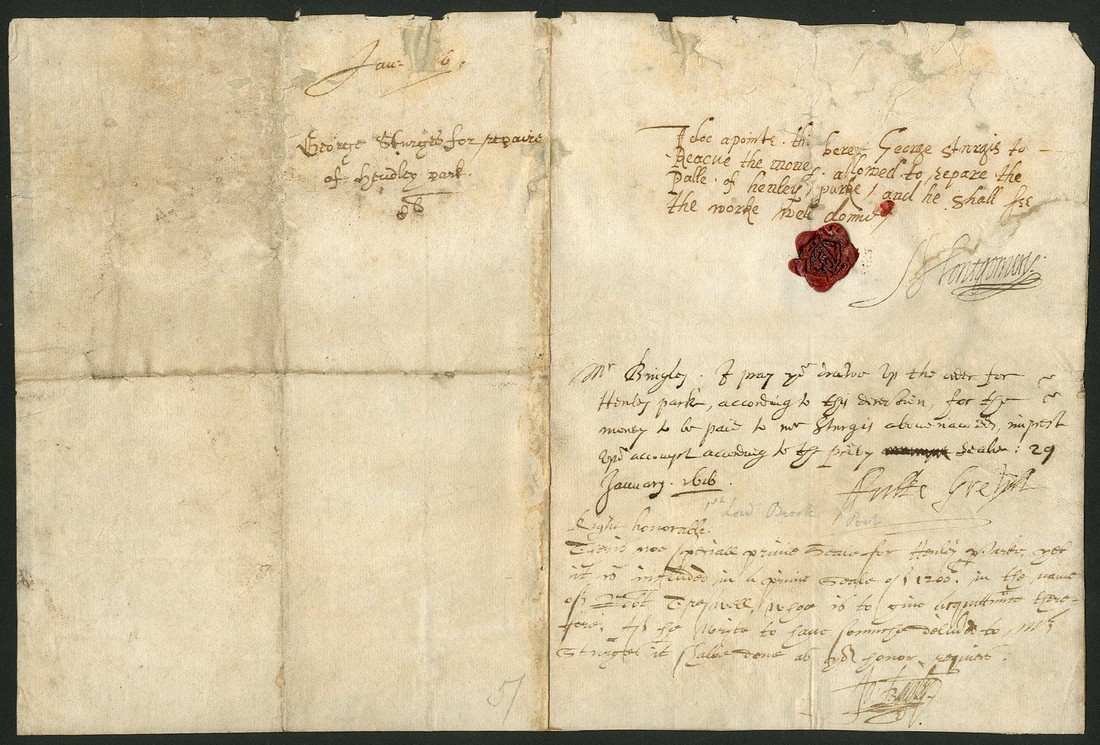 Jan: 16.
George Sturges for repaire
of Hendley park.
I doe apointe the berer George Sturgis to
Reacue the money allowed to repare the
Palle of henley parke, and he shall see
the worke well donne
Montgomery.
Mr Bingley. I pray you drawe up the order for
Henley park, according to this direction, for the
money to be paid to mr Sturgis abovenamed, in prest
upon accompt according to the privy seale: 29
January. 1616.
Fulke Grevyll
1st Lord Brook Poet
Right honorable.
Ther is noe speciall privie Seale for Henley parke, yet
it is included in a privie Seale of 1200 in the name
of Robt Treswell, whoe is to give acquittance there-
fore. If he write to have somuche delivered to Mr
Sturges it shalbe done as your honor requires.
51